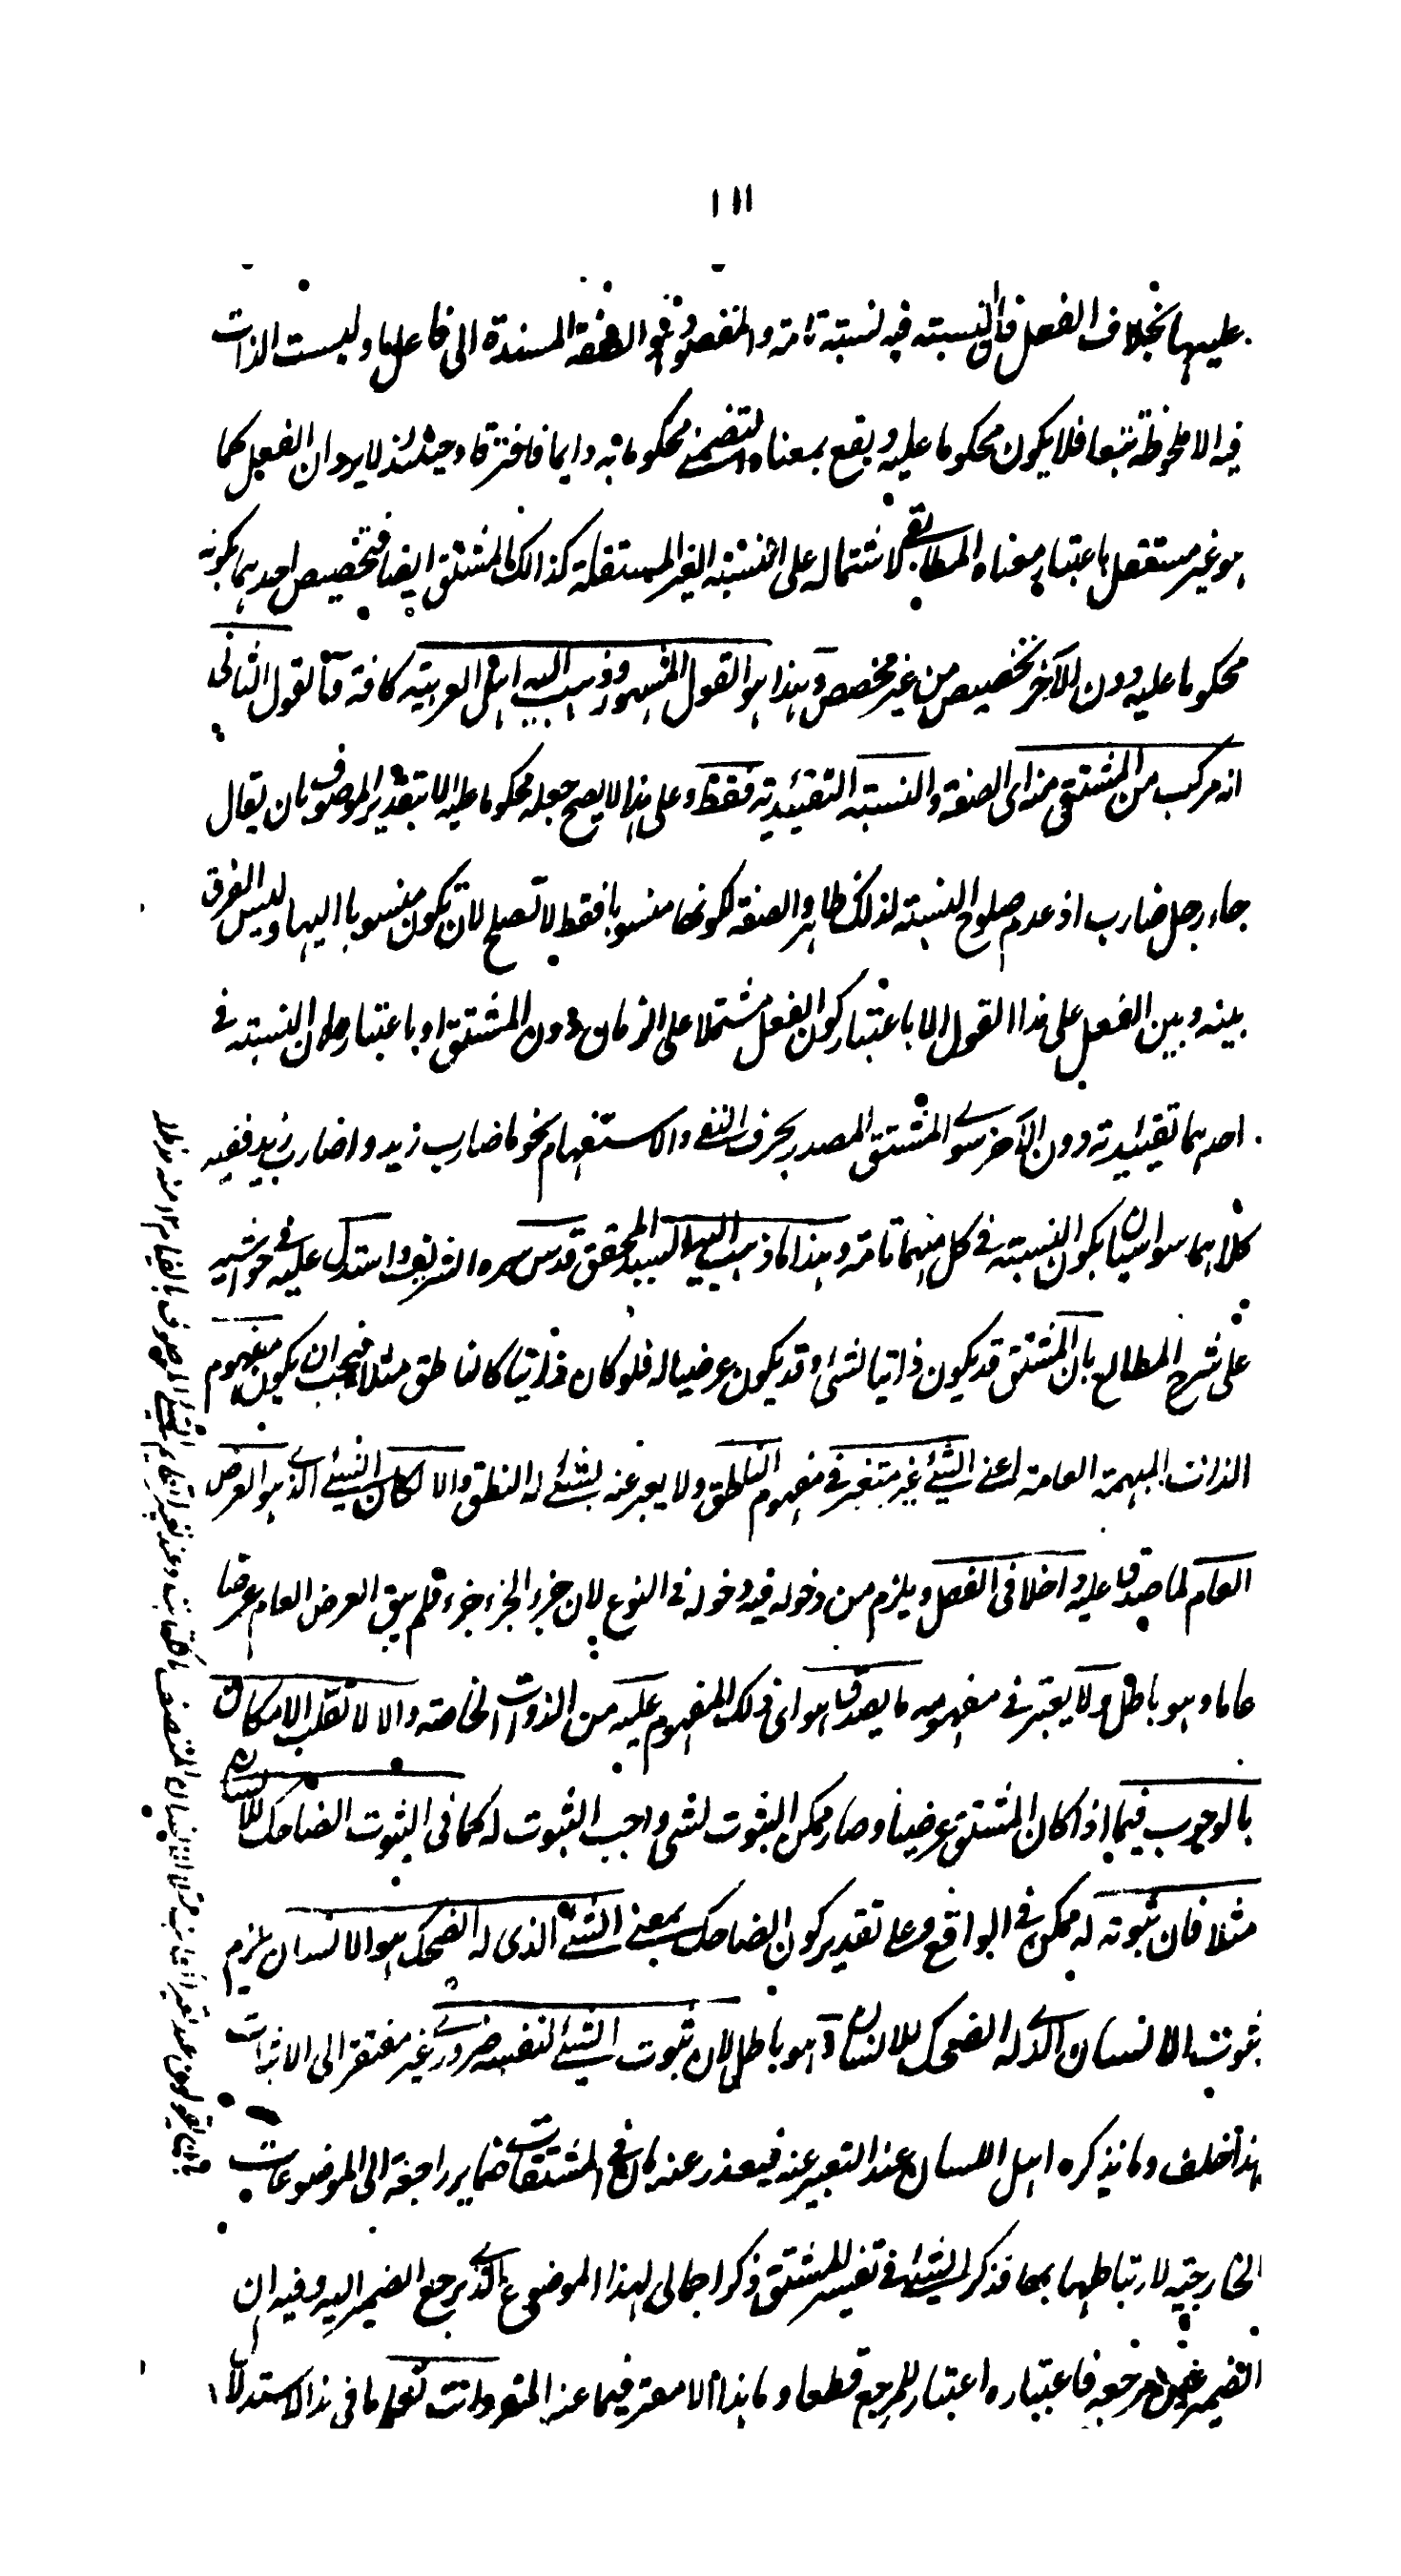 ١١١
عليها بخلاف الفعل فان النسبته فيه نسبته تامة والمقصود هو الصفة المسندة الى فاعلها وليست الذات
فيه الا ملحوظة تبعا فلا يكون محكوما عليه و يقع بمعناه التضمنے محكوما به دايما فافترقا وحينئذ لا يرد ان الفعل كما
هو غير مستقل باعتبار معناه المطابقے لاشتماله على النسبته الغير المستقلة كذالك المشتق ايضا فتخصيص احدهما بكونه
محكوما عليه دون الآخر تخصيص من غير مخصص وهذا هو القول المشهور وذهب اليه اهل العربيته كافة والقول الثانى
انه مركب من المشتق منه اى الصفة والنسبته التقئيدية فقط وعلى هذا لا يصح جعله محكوما عليه الا بتقدير الموصوف بان يقال
جاء رجل ضارب اذ عدم صلوح النسبته لذلك ظاهر والصفة لكونها منسوبا فقط لا تصلح لان تكون منسوبا اليها وليس الفرق
بينه و بين الفعل على هذا القول الا باعتبار كون الفعل مشتملا على الزمان دون المشتق او باعتبار ان النسبته فے
احدهما تقيئيدية دون الآخر سوے المشتق المصدر بحرف النفے والاستفهام نحو ما ضارب زيد واضارب زيد ففيه
كلاهما سواسيان بكون النسبته فے كل منهما تامة وهذا ما ذهب اليه السيد المحقق قدس سره الشريف واستدل عليه فے حواشيه
على شرح المطالع بان المشتق قد يكون ذاتيا لشئ وقد يكون عرضيا له فلو كان ذاتيا كالناطق مثلا فيجب ان يكون مفهوم
الذات المبهمة العامة اعنے الشيئے غير معتبر فے مفهوم الناطق ولا يعبر عنه بشئے له النطق والا لكان الشيئے الذے هو العرض
العام لما صدق عليه داخلا فى الفصل ويلزم من دخوله فيه دخوله فے النوع لان جزء الجزء جزء فلم يبق العرض العام عرضا
عاما وهو باطل ولا يعتبر فے مفهومه ما يصدق هو اى ذلك المفهوم عليه من الذوات الخاصة والا لانقلب الامكان
بالوجوب فيما اذا كان المشتق عرضيا وصار ممكن الثبوت لشئ واجب الثبوت له كما فى الثبوت الضاحك للانسان
مثلا فان ثبوته له ممكن فے الواقع وعلے تقدير كون الضاحك بمعنے الشئے الذى له الضحك هو الانسان يلزم
ثبوت الانسان الذے له الضحك للانسان وهو باطل لان ثبوت الشيئے لنفسه ضرورے غير مفتقر الى الاثبات
هذا خلف وما يذكره اهل اللسان عند التعبير عنه فيعذر عنه بان فے المشتقات ضماير راجعة الى الموضوعات
الخارجيه لارتباطها بها فذكر الشيئے فے تفسير المشتق ذكر اجمالى لهذا الموضوع الذے يرجع الضمير اليه وفيه ان
الضمير عين مرجعه فاعتباره اعتبار للمرجع قطعا وما هذا الا مفر فيما عنه المفر وانت تعلم ما فى هذا الاستدلال